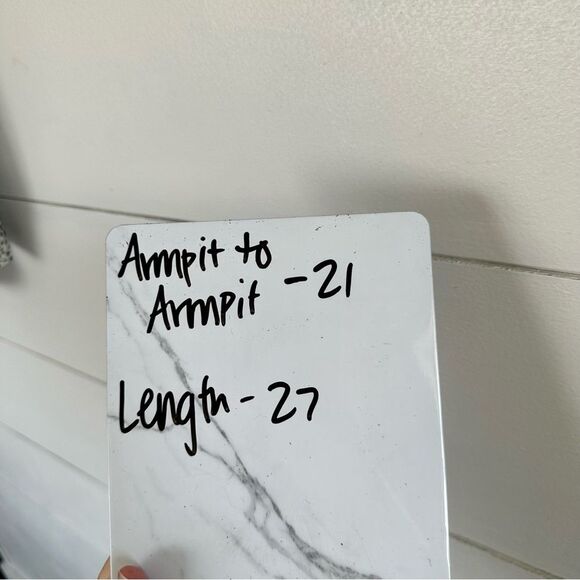 Armpit to
Armpit - 21
Length - 27